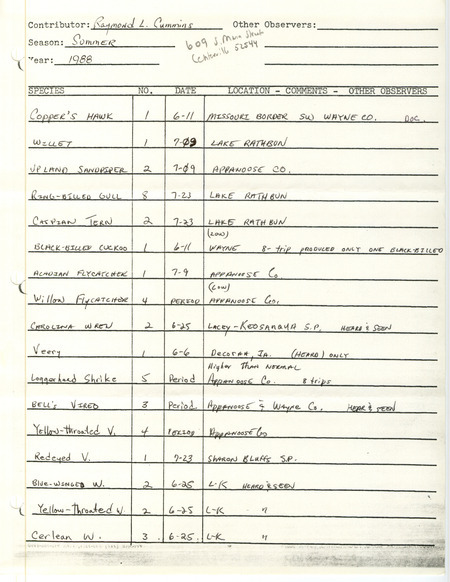 Contributor: Raymond L. Cummins Other Observers:
Season: Summer 609 S. Main Street
Centerville 52544
Year: 1988
SPECIES NO. DATE LOCATION - COMMENTS - OTHER OBSERVERS
COPPER'S HAWK 1 6-11 MISSOURI BORDER SW WAYNE CO. DOC.
WILLET 1 7-09 LAKE RATHBUN
UPLAND SANDPIPER 2 7-09 APPANOOSE CO.
RING-BILLED GULL 8 7-23 LAKE RATHBUN
CASPIAN TERN 2 7-23 LAKE RATHBUN
(LOW)
BLACK-BILLED CUCKOO 1 6-11 WAYNE 8-trip PRODUCED ONLY ONE BLACK-BILLED
ACADIAN FLYCATCHER 1 7-9 APPANOOSE Co.
(LOW)
Willow Flycatcher 4 PERIOD APPANOOSE Co.
CAROLINA WREN 2 6-25 LACEY-KEOSAUQUA S.P. HEARD & SEEN
Veery 1 6-6 DECORAH, IA. (HEARD) ONLY
Higher Than NORMAL
Loggerhead Shrike 5 Period APPANOOSE Co. 8 trips
BELL'S VIREO 3 Period APPANOOSE & WAYNE Co. HEAR & SEEN
Yellow-throated V. 4 PERIOD APPANOOSE Co
Redeyed V. 1 7-23 SHARON BLUFFS S.P.
BLUE-WINGED W. 2 6-25 L-K HEARD & SEEN
Yellow-Throated W. 2 6-25 L-K "
Cerulean W. 3 6-25 L-K "